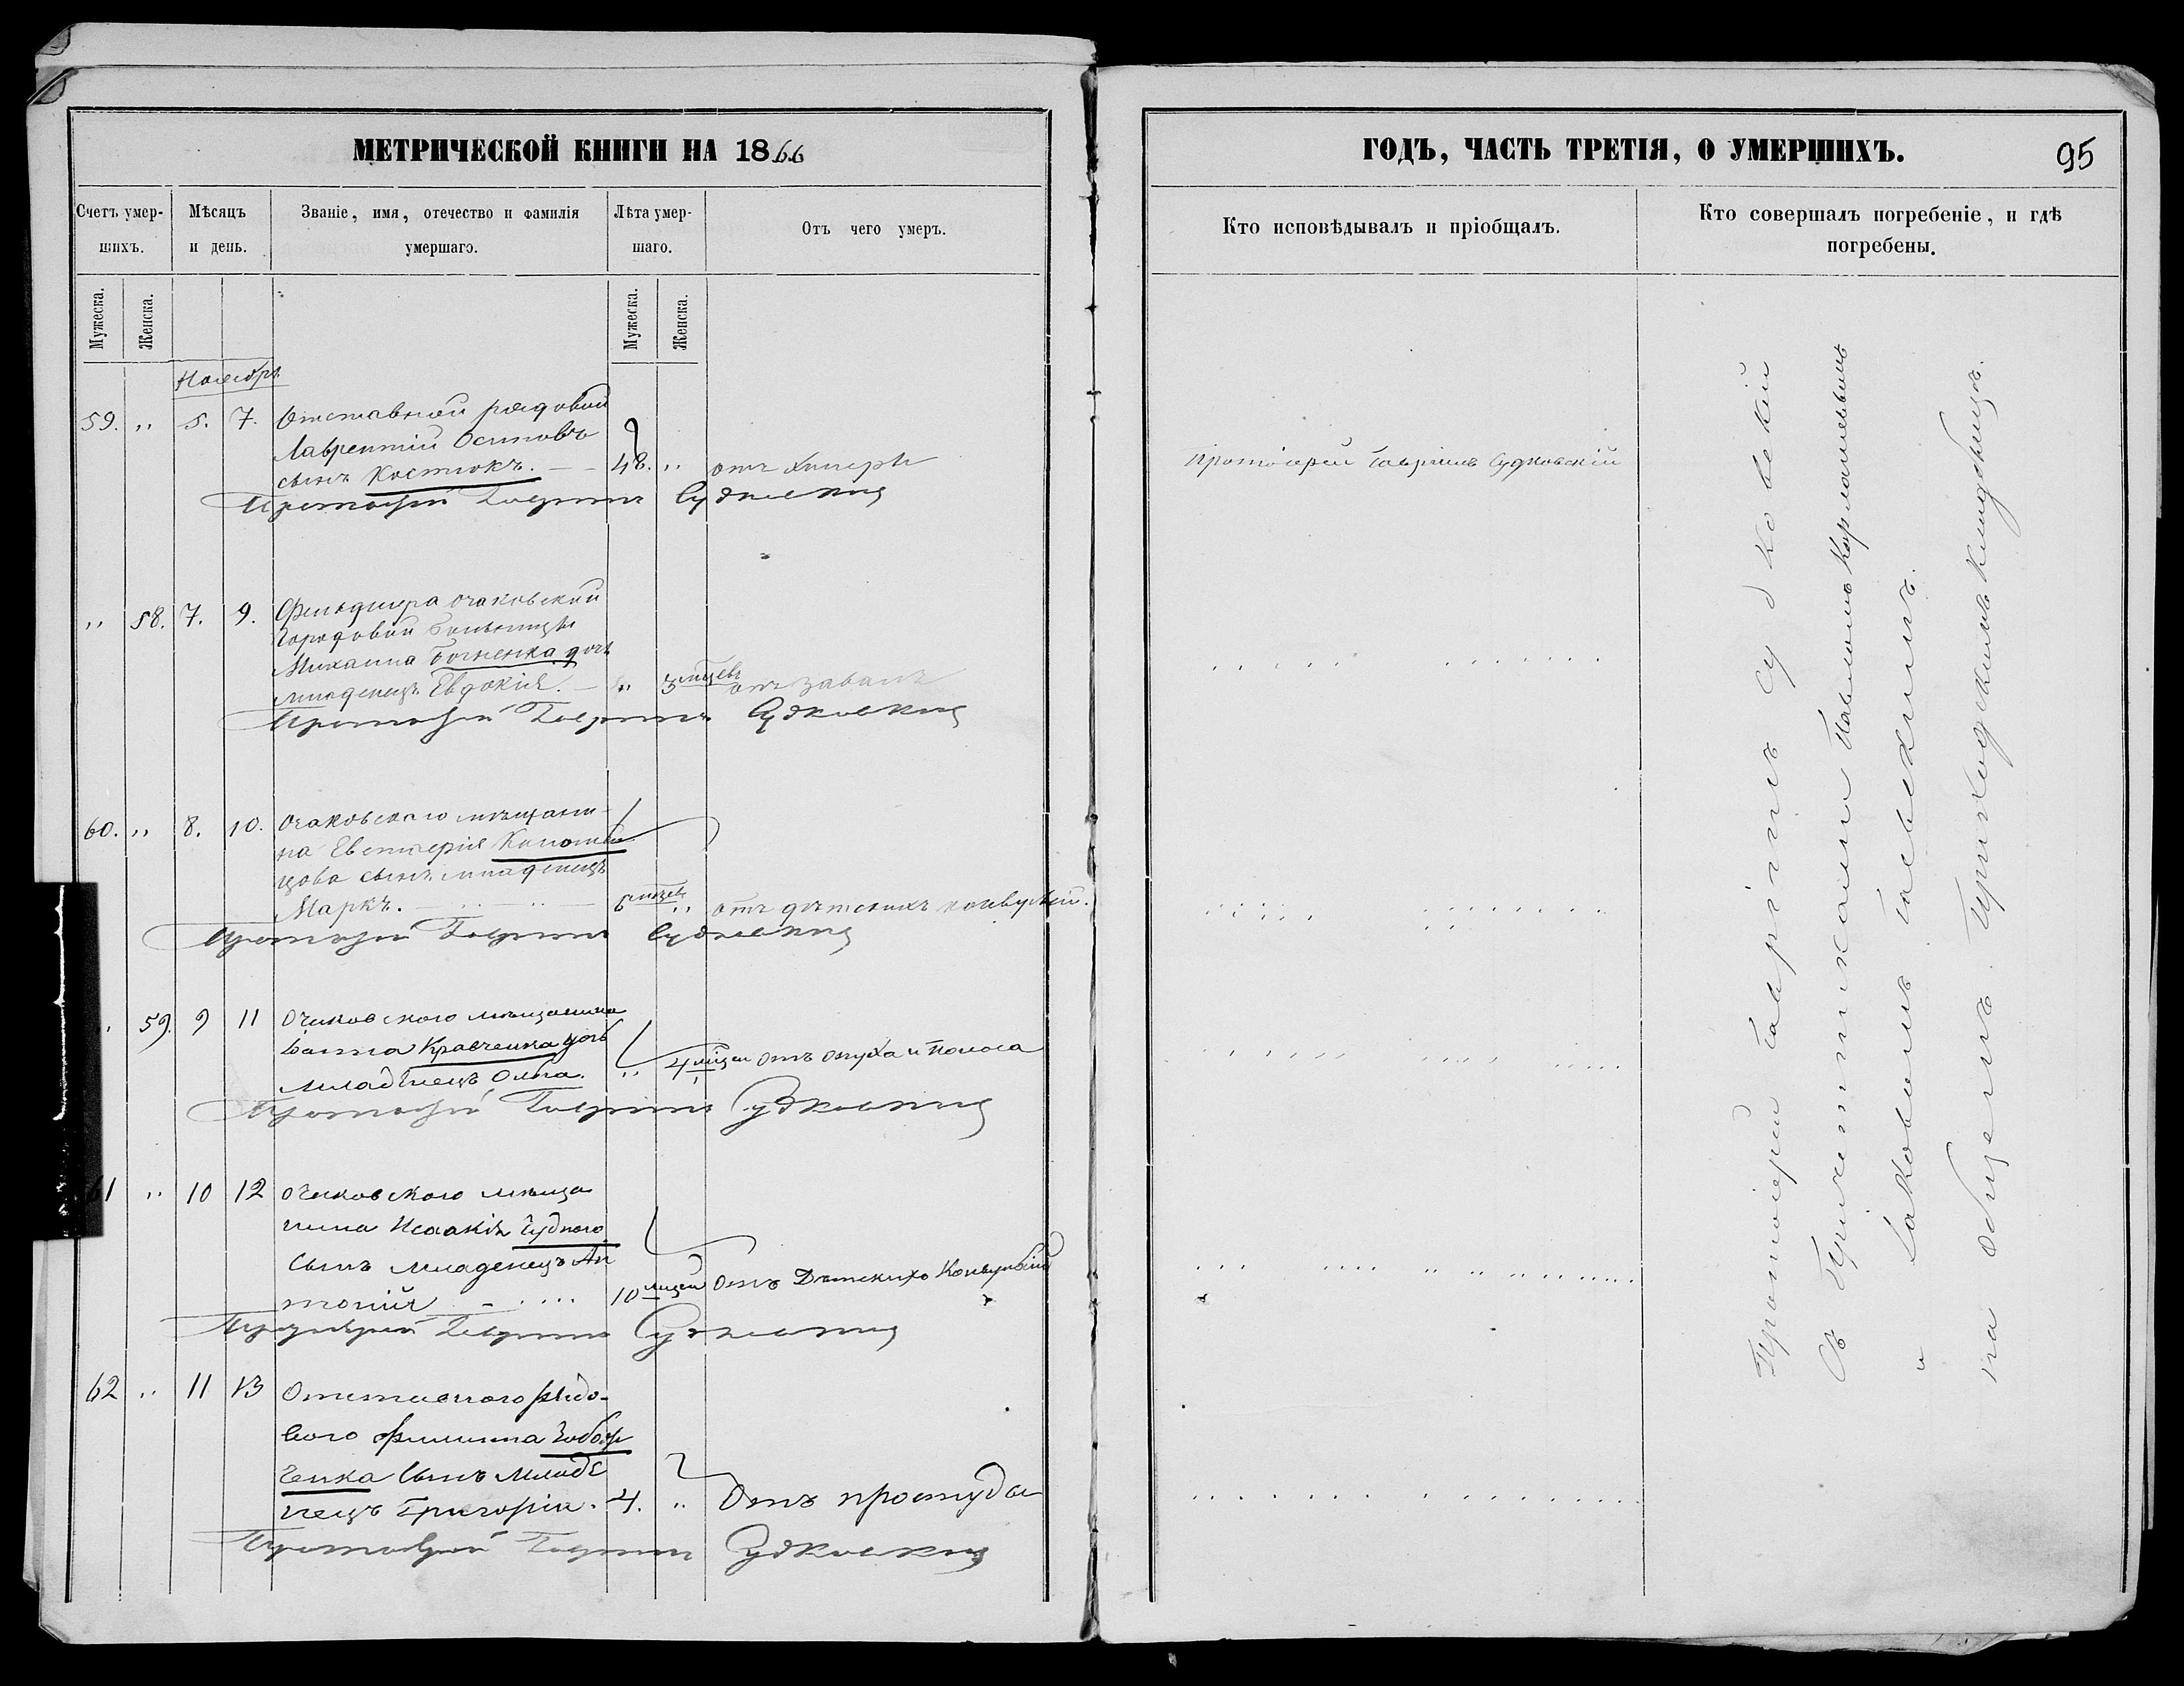 МЕТРИЧЕСКОЙ КНИГИ НА 1866
Счетъ умершихъ.
Мѣсяцъ и день.
Званіе, имя, отечество и фамилія умершаго.
Лѣта умершаго.
Отъ чего умеръ.
Мужеска.
Женска.
Мужеска.
Женска.
Ноябрь
59. „ 5. 7. Отставной рядовой
Лаврентій Осиповъ
сынъ Костюкъ. — — 48. „ отъ холеры
Протоіерей Гавріилъ Судковскій
„ 58. 7. 9. Фельдшера очаковской
городовой больницы
Михаила дочь
младенецъ Евдокія. — „ 3 мцевъ отъ завалъ
Протоіерей Гавріилъ Судковскій
60. „ 8. 10. Очаковскаго мѣщани-
на Евстафія
цова сынъ младенецъ
Маркъ. 6 мцевъ „ отъ дѣтскихъ конвульсій.
Протоіерей Гавріилъ Судковскій
„ 59. 9 11 Очаковского мѣщанина
Кравченка дочь
младенецъ Ольга. „ 4 мцеи отъ и поноса
Протоіерей Гавріилъ Судковскій
61 „ 10 12 Очаковского мѣща
нина Исаакія Чудного
сынъ младенецъ Ан
тоній 10 мцеи отъ Дѣтскихъ Конвульсій
Протоіерей Гавріилъ Судковскій
62 „ 11 13 Отставного рядо-
вого Филиппа
ченка сынъ младе
нецъ Григорій. 4. „ Отъ простуды
Протоіерей Гавріилъ Судковскій
ГОДЪ, ЧАСТЬ ТРЕТІЯ, О УМЕРШИХЪ.
95
Кто исповѣдывалъ и пріобщалъ.
Кто совершалъ погребеніе, и гдѣ погребены.
Протоіерей Гавріилъ Судковскій
Протоіерей Гавріилъ Судковскій
Съ Причетниками Павломъ
и Іаковомъ
на общемъ Приходскомъ кладбищѣ.